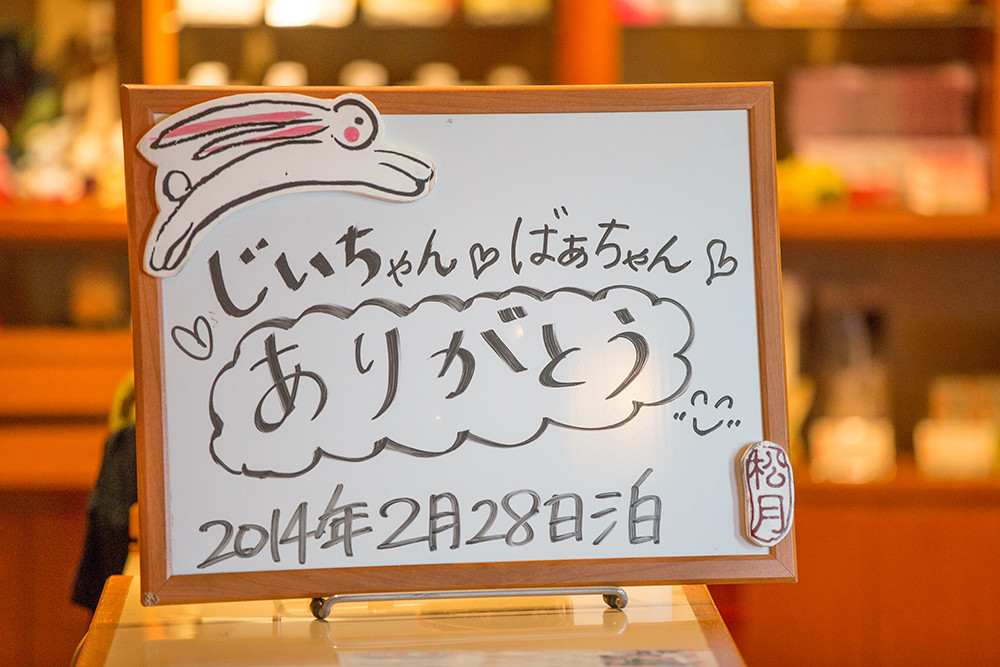 じいちゃん♡ばぁちゃん♡
ありがとう
2014年2月28日泊
松月